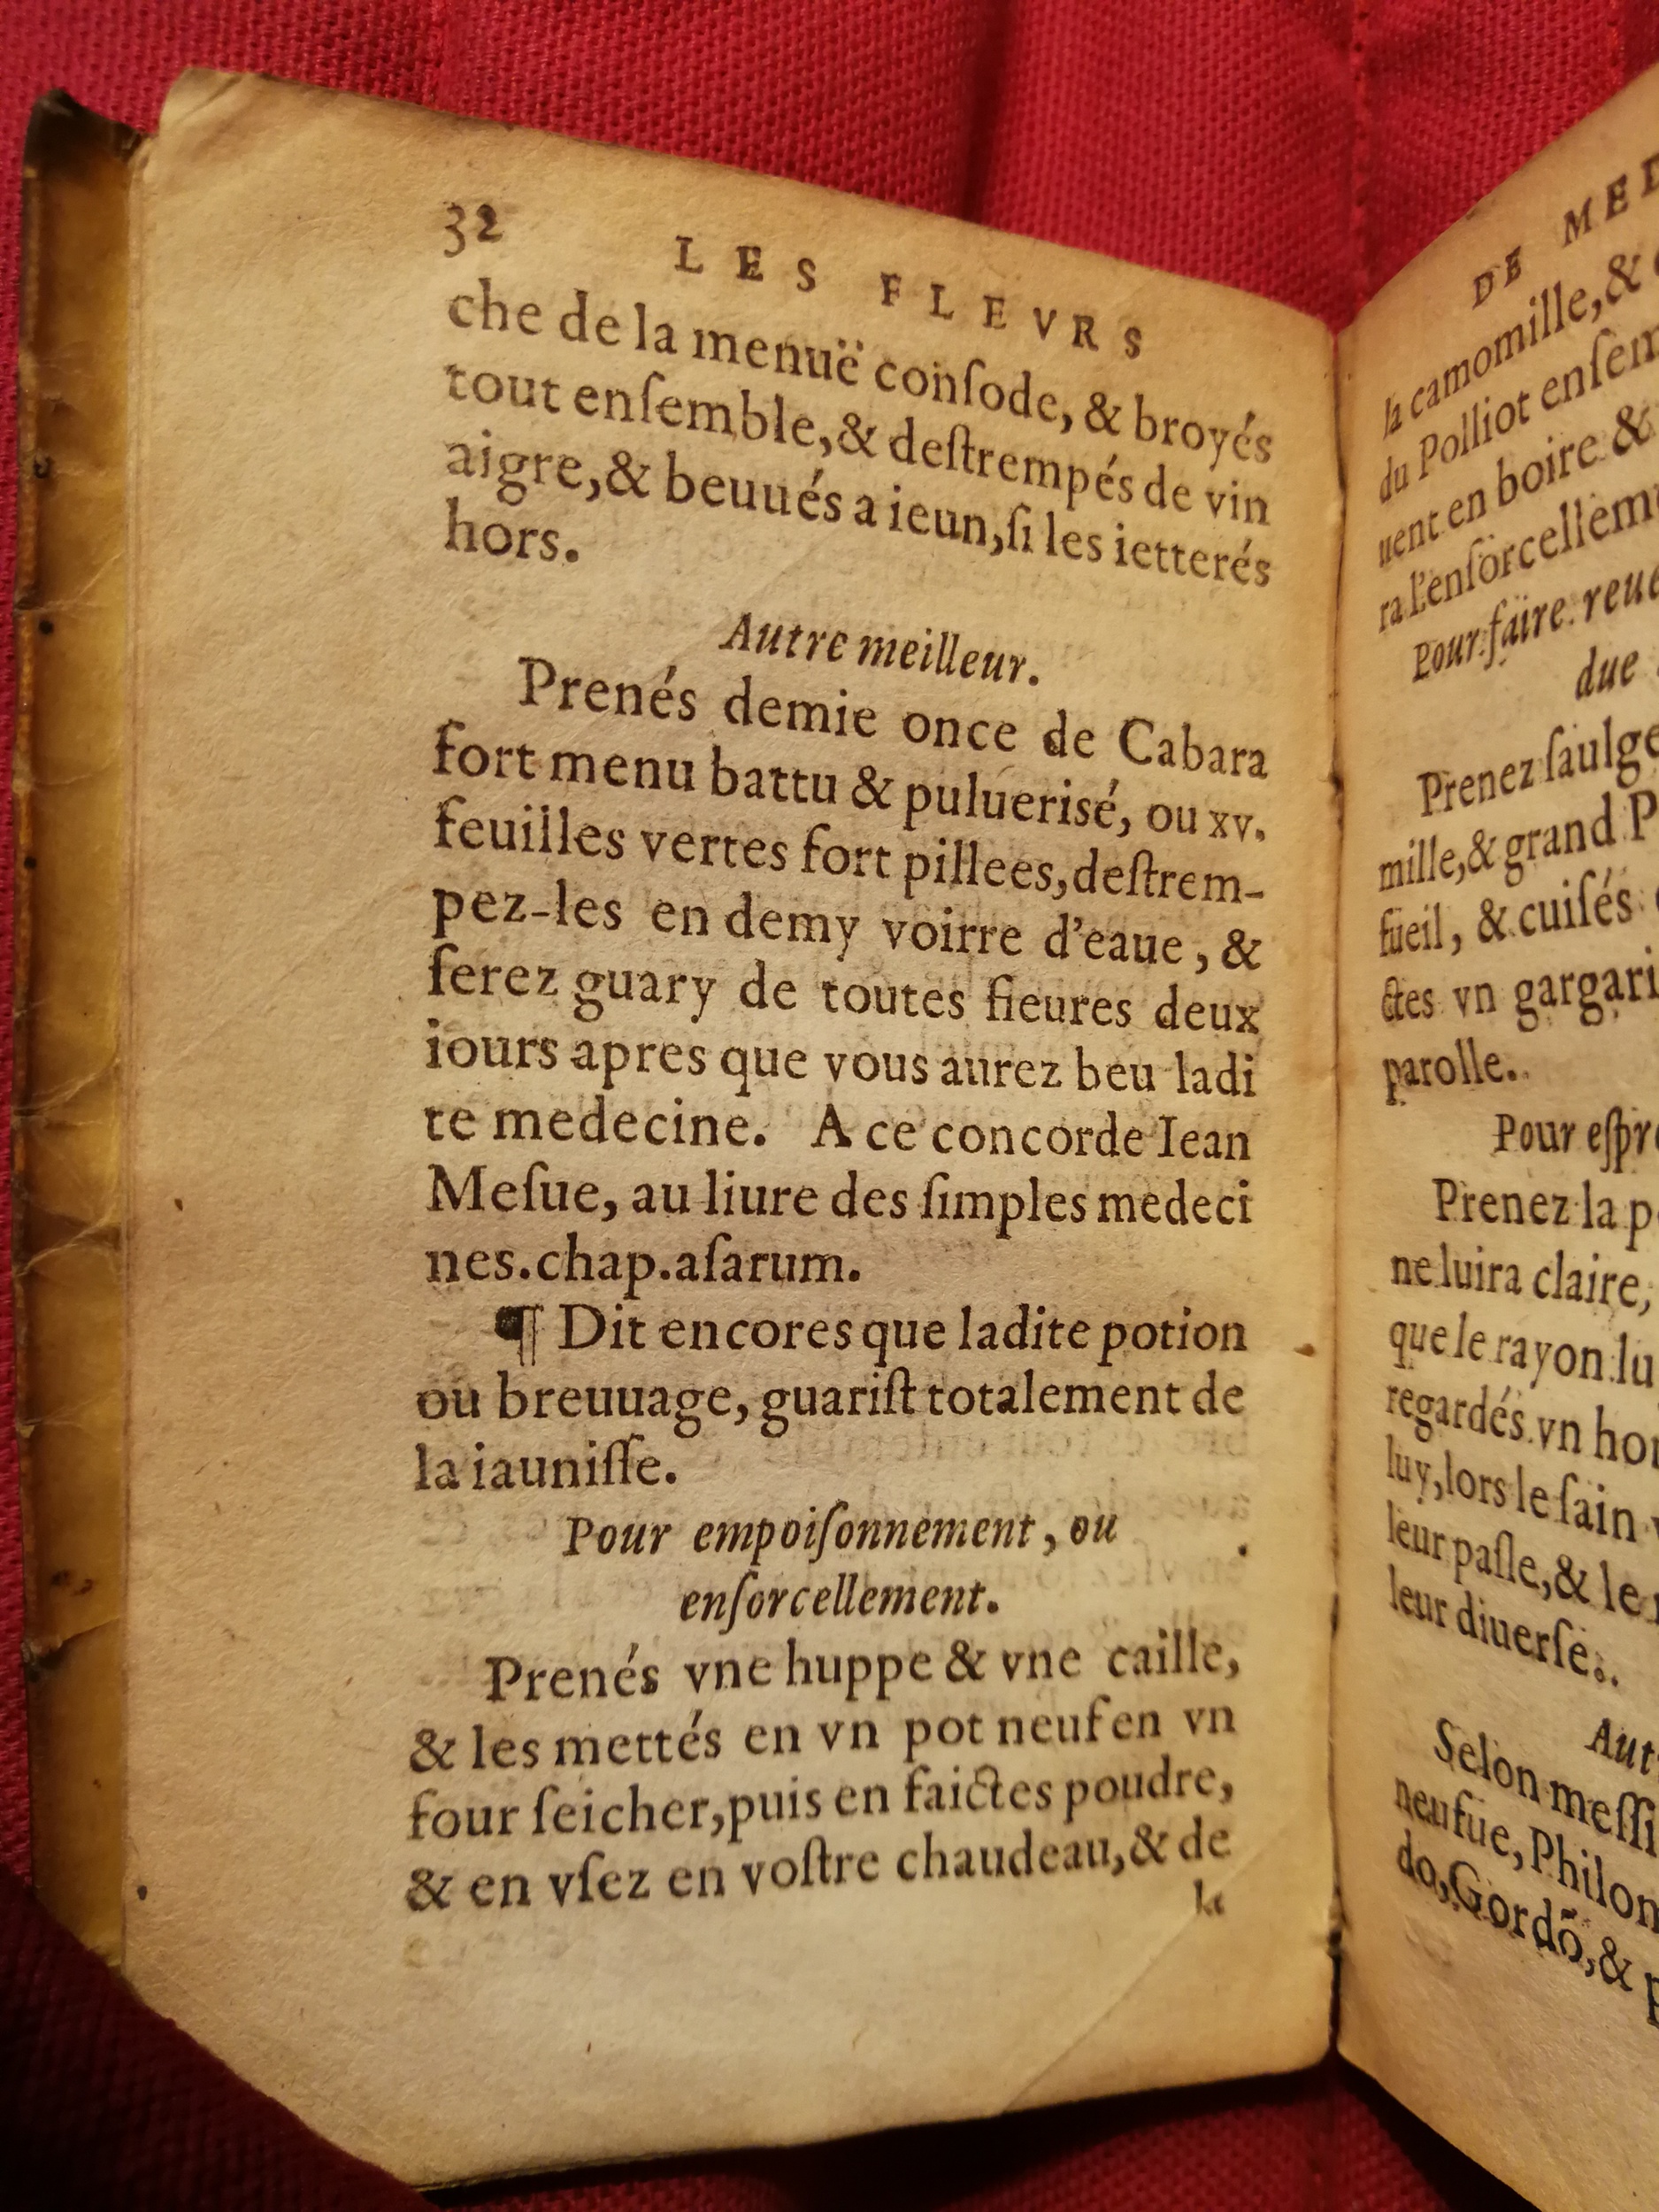 32 LES FLEVRS
che de la menuë conſode, & broyés
tout enſemble,& deſtrempés de vin
aigre,& beuués a ieun,ſi les ietterés
hors.
Autre meilleur.
Prenés demie once de Cabara
fort menu battu & puluerisé, ou xv.
feuilles vertes fort pillees,deſtrem-
pez-les en demy voirre d'eaue, &
ſerez guary de toutes fieures deux
iours apres que vous aurez beu ladi
te medecine. A ce concorde Iean
Meſue, au liure des ſimples medeci
nes.chap.aſarum.
¶ Dit encores que ladite potion
ou breuuage, guariſt totalement de
la iauniſſe.
Pour empoiſonnement, ou
enſorcellement.
Prenés vne huppe & vne caille,
& les mettés en vn pot neuf en vn
four ſeicher,puis en faictes poudre,
& en vſez en voſtre chaudeau,& de
le
DE MED
la camomille,&
du Polliot enſem
uent en boire &
ra l'enſorcelleme
Pour faire reue
due
Prenez ſaulge
mille,& grand P
fueil, & cuiſés
ctes vn gargari
parolle.
Pour eſpr
Prenez la p
ne luira claire,
que le rayon lu
regardés vn ho
luy,lors le ſain
leur paſle,& le
leur diuerſe.
Aut
Selon meſſi
neufue, Philon
do,Gordõ,& p